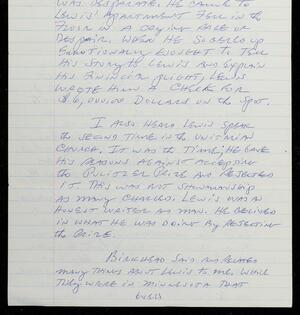 WAS DESPARATE. HE CAME TO
LEWIS' APARTMENT FELL IN THE
FLOOR IN A CRYING RAGE OF
DESPAIR. WHEN HE SOBERED UP
EMOTIONALLY ENOUGHT TO TELL
HIS STORY TO LEWIS AND EXPLAIN
HIS FINANCIAL PLIGHT, LEWIS
WROTE HIM A CHECK FOR
$6,000.00 DOLLARS ON THE SPOT.
I ALSO HEARD LEWIS SPEAK
THE SECOND TIME IN THE UNITARIAN
CHURCH. IT WAS THE TIME HE GAVE
HIS REASONS AGAINST ACCEPTING
THE PULITZER PRIZE AND REJECTED
IT. THIS WAS NOT SHOWMANSHIP
AS MANY CHARGED. LEWIS WAS AN
HONEST WRITER AND MAN. HE BELIEVED
IN WHAT HE WAS DOING BY REJECTING
THE PRIZE.
BIRKHEAD SAID AND RELATED
MANY THINGS ABOUT LEWIS TO ME. WHILE
THEY WERE IN MINNESOTA THAT